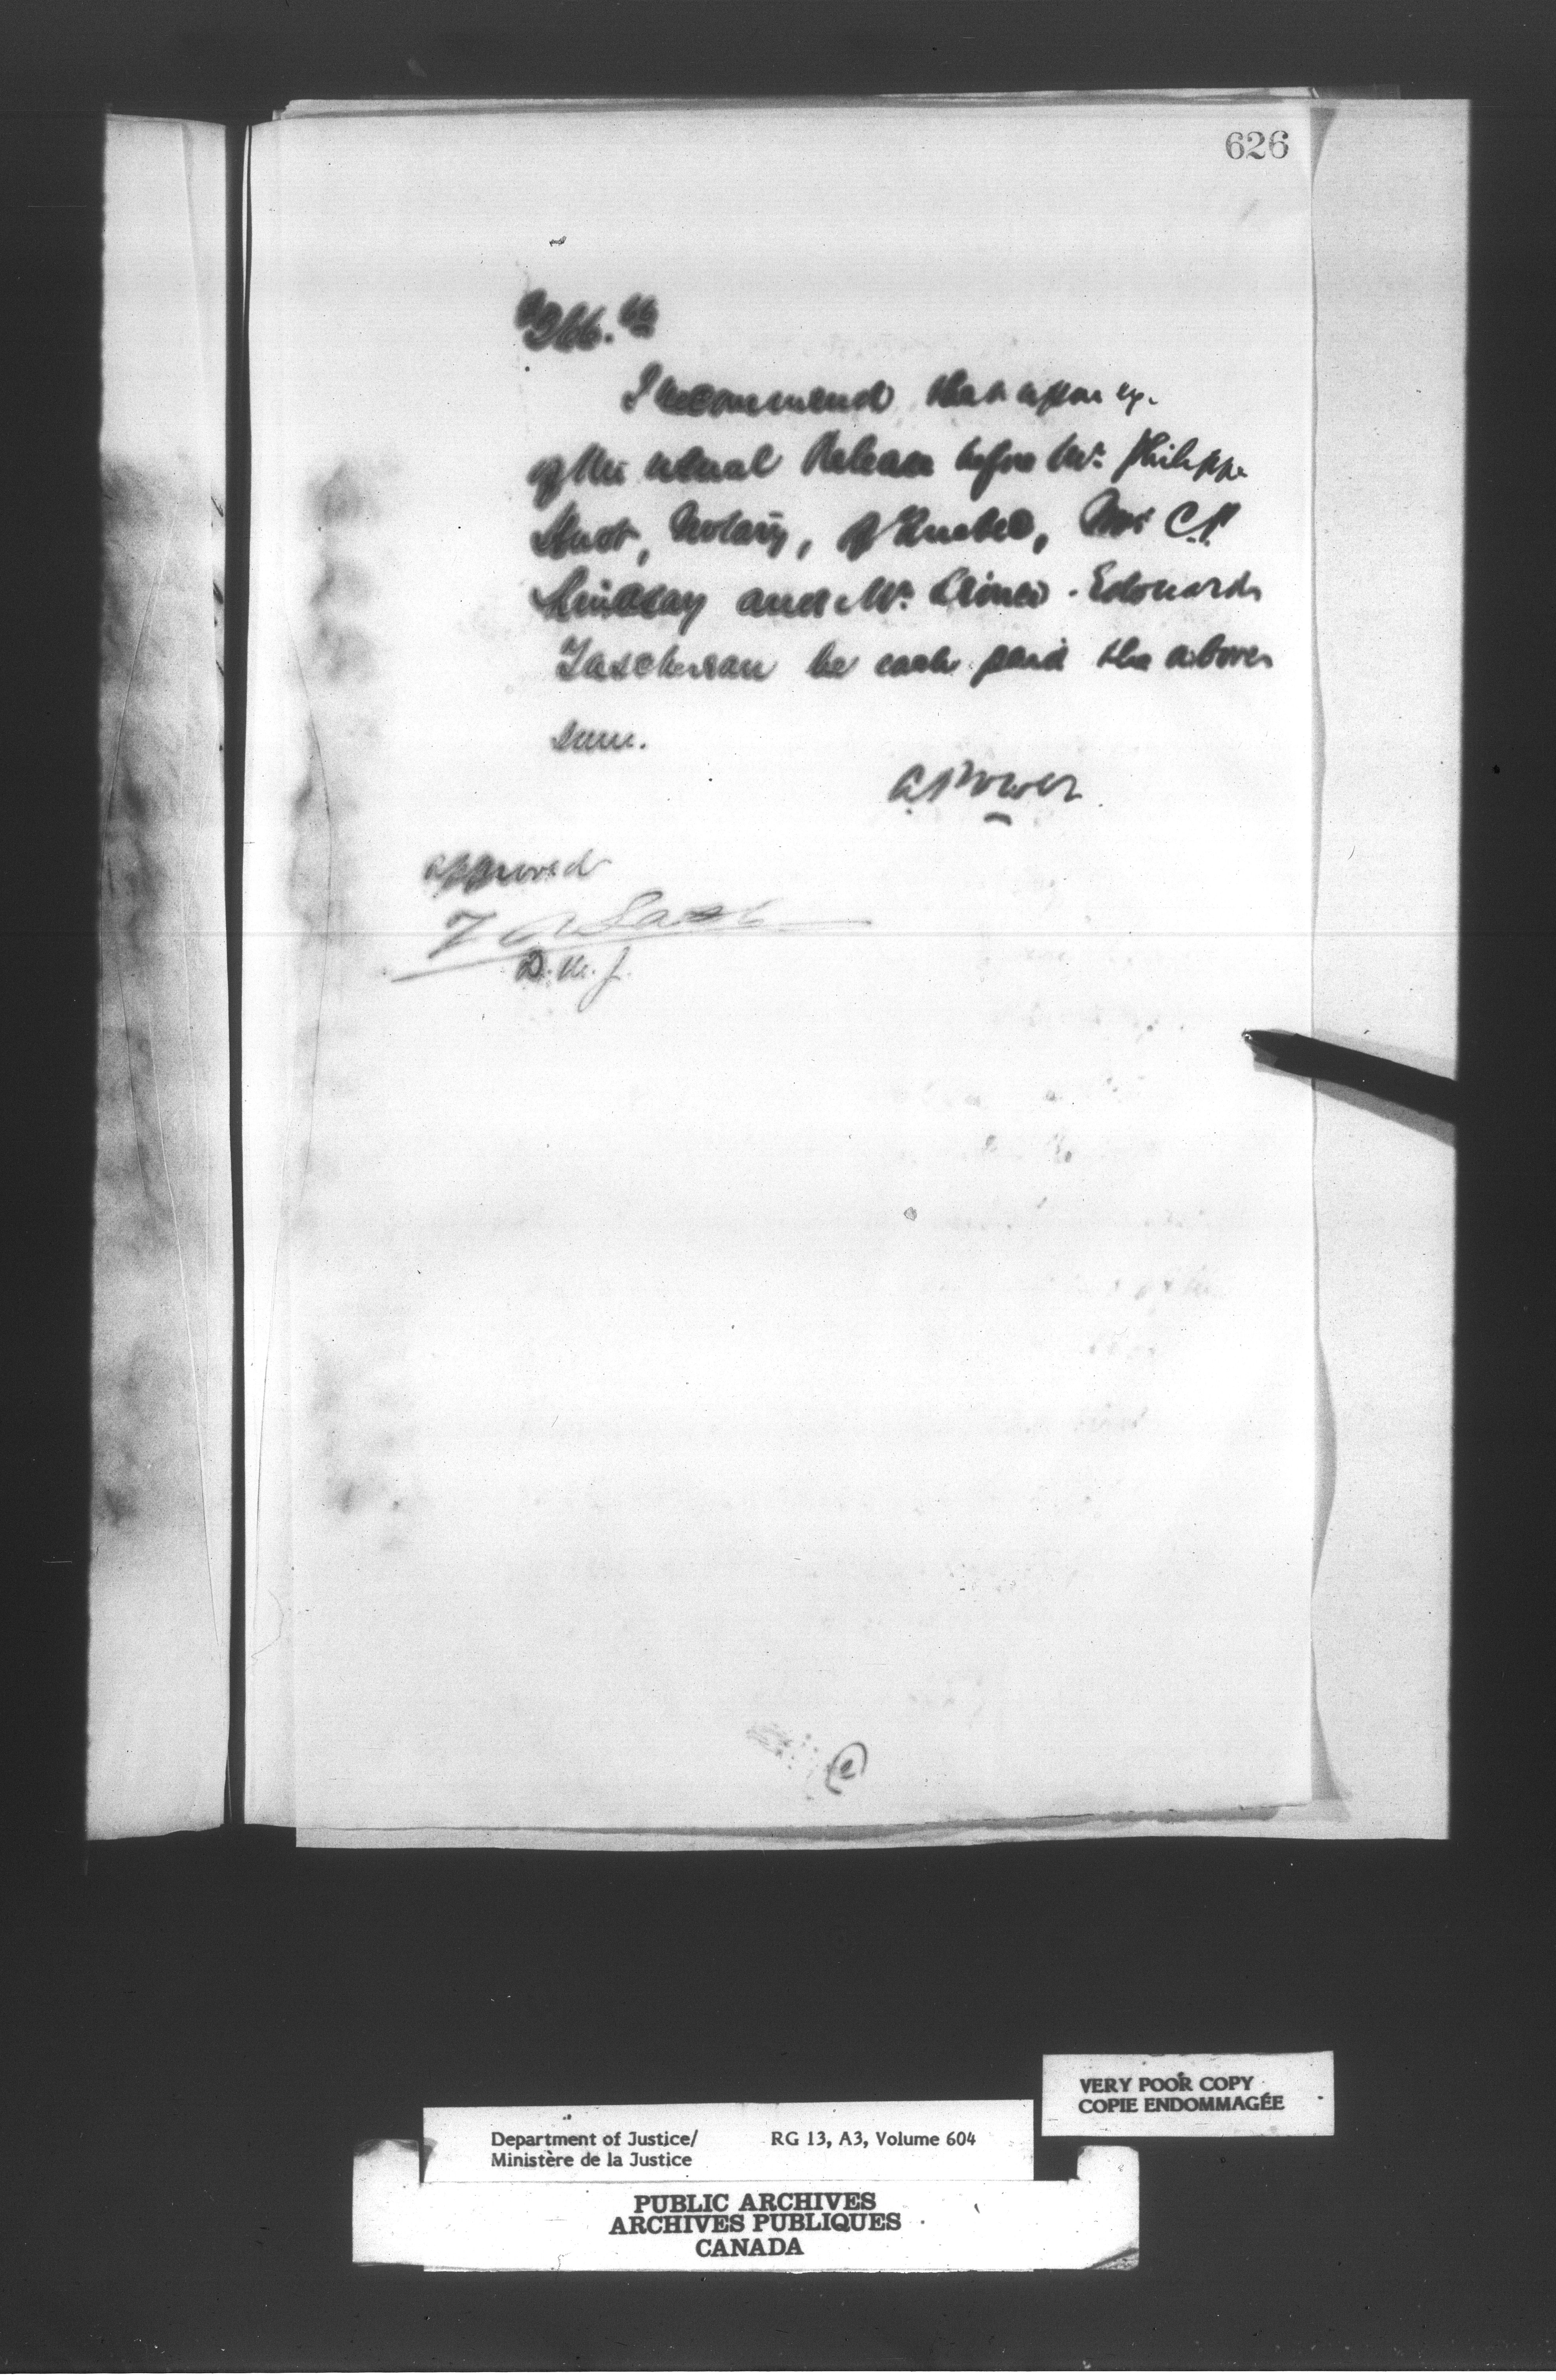 626
$266.66
I recommend that upon ex.
of the usual Release before Mr. Philippe
Huot, Notary, of Quebec, Mr. C.P.
Lindsay and Mr. Edouard
Taschereau be each paid the above
sum.
A Power
approved
Z A Lash
D. M. J.
2
VERY POOR COPY
COPIE ENDOMMAGÉE
Department of Justice/ RG 13, A3, Volume 604
Ministère de la Justice
PUBLIC ARCHIVES
ARCHIVES PUBLIQUES
CANADA